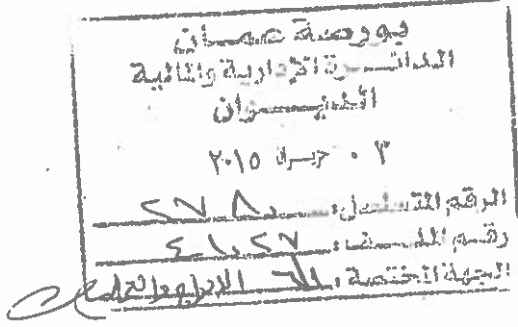 بورصة عمان
الدائرة الإدارية والمالية
الديوان
٠٣ حزيران ٢٠١٥
الرقم المتسلسل: ٢٧٨٠
رقم الملف: ٤١٠٢٧
الجهة المختصة: الادراج